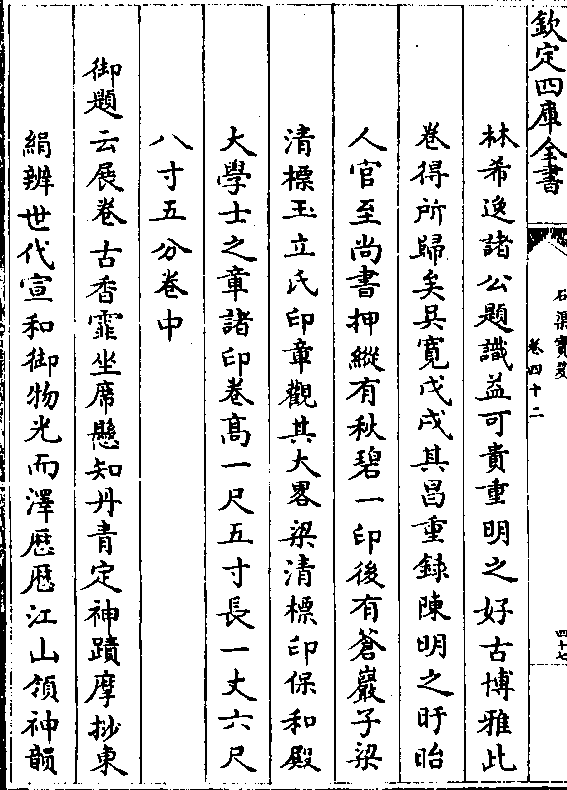 欽定四庫全書
石渠寶笈
卷四十二
四十七
林希逸諸公題識益可貴重明之好古博雅此
卷得所歸矣吳寬戊戌其昌重錄陳明之盱眙
人官至尚書押縫有秋碧一印後有蒼巖子梁
清標玉立氏印章觀其大畧梁清標印保和殿
大學士之章諸印卷髙一尺五寸長一丈六尺
八寸五分卷中
御題云展卷古香霏坐席懸知丹青定神蹟摩抄東
絹辨世代宣和御物光而澤歴歴江山領神韻